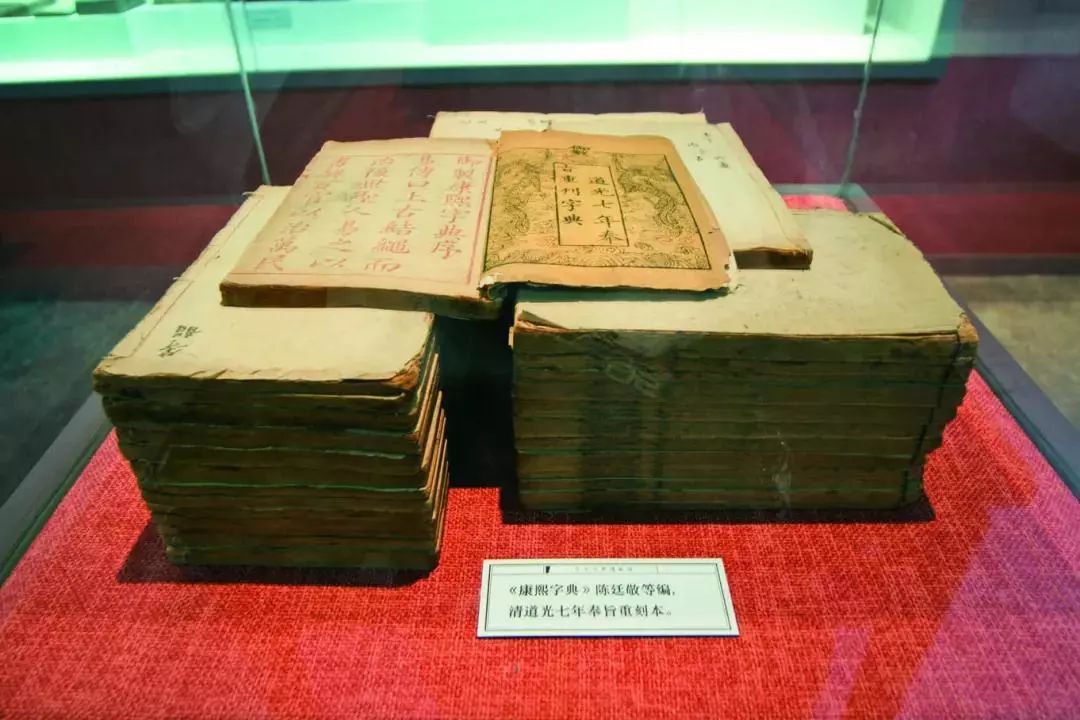 御製康熙字典序
易傳曰上古結繩而
治後世聖人易之以
書契百官以治萬民
御製
道光七年奉
旨重刊字典
《康熙字典》陈廷敬等编,
清道光七年奉旨重刻本。